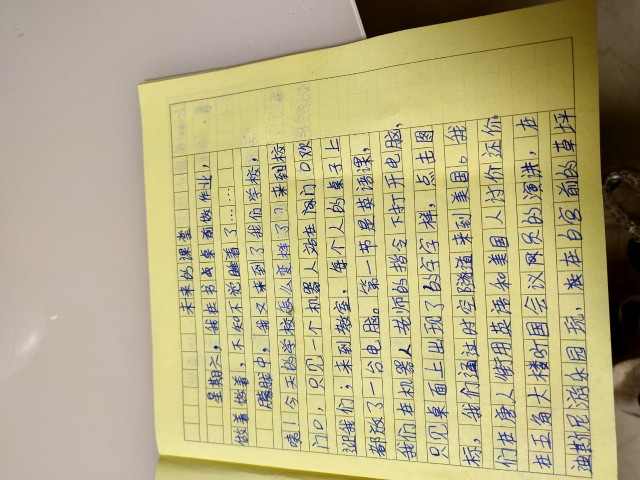 未来的课堂
星期六,我在书桌前做作业,
做着做着,不知不觉睡着了……
朦胧中,我又来到了我们学校,
咦!今天的学校怎么变样了?来到校
门口,只见一个机器人站在门口欢
迎我们;来到教室,每个人的桌子上
都放了一台电脑。第一节是英语课,
我们在机器人老师的指令下打开电脑,
只见桌面上出现了的字字样,点击图
标,我们通过时空隧道来到美国。我
们在唐人街用英语和美国人讨价还价,
在五角大楼听国会议员的演讲,在
迪斯尼游乐园玩,在白宫前的草坪